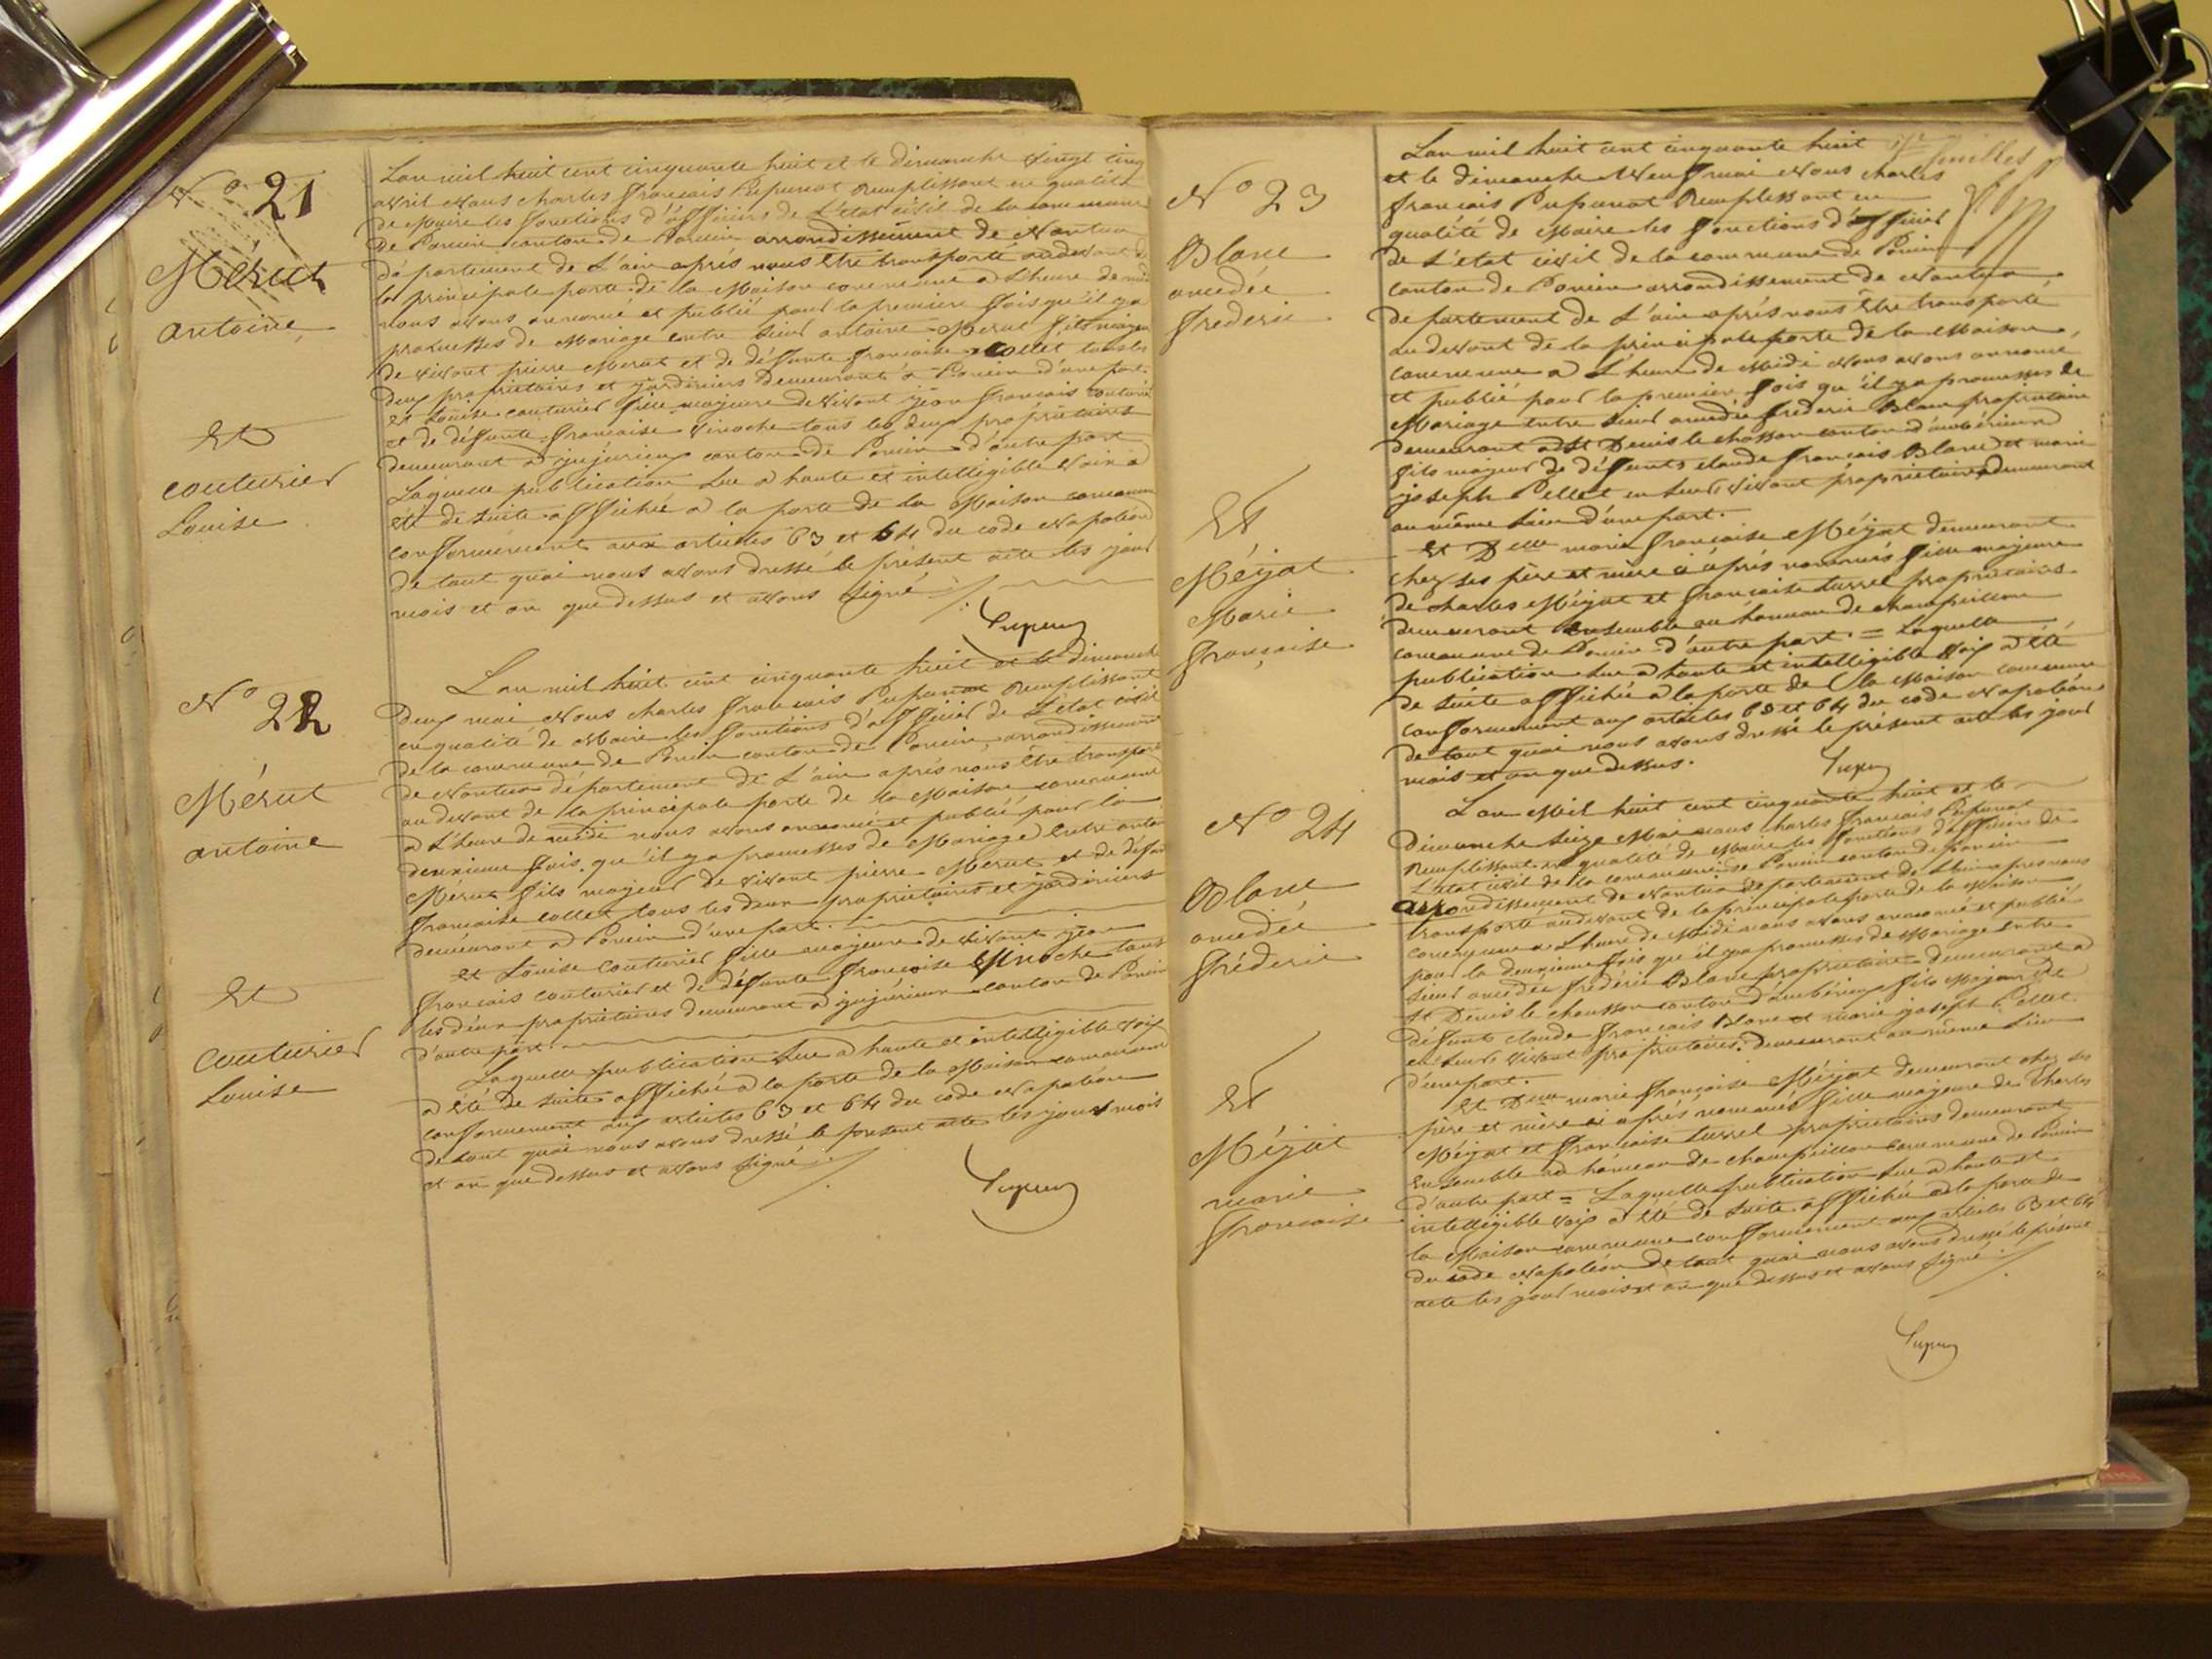 N° 21
Mérut
antoine
Et
couturier
Louise
L'an mil huit cent cinquante huit et le dimanche vingt cinq
avril Nous charles francois Pupunat Remplissant en qualité
de Maire les fonctions d'officiers de L'état civil de la commune
De Poncin canton de Poncin arrondissement de Nantua
département de L'ain après nous être transporté audevant de
la principale porte de la Maison commune a L'heure de midi
nous avons annoncé et publié pour la premiere fois qu'il y a
promesses de Mariage entre Sieur antoine Merut fils majeur
de vivant pierre Merut et de défunte francoise Collet tous les
deux propriétaires et jardiniers demeurant à Poncin d'une part
et Louise couturier fille majeure de vivant jean francois couturier
et de défunte francoise Vinoche tous les deux propriétaires
demeurant a jujurieux canton de Poncin d'autre part
Laquelle publication Lue a haute et intelligible voix a
été de suite affichée a la porte de la Maison commune
conformément aux articles 63 et 64 du code Napoléon
De tout quoi nous avons dressé le présent acte les jour
mois et an que dessus et avons signé
N° 22
Mérut
antoine
Et
Couturier
Louise
L'an mil huit cent cinquante huit et le dimanche
Deux mai Nous charles francois Pupunat Remplissant
en qualité de Maire les fonctions d'officier de L'état civil
de la commune de Poncin canton de Poncin, arrondissement
de Nantua département de L'ain après nous être transporté
au devant de la principale porte de la Maison commune
a L'heure de midi nous avons annoncé et publié pour la
deuxieme fois qu'il y a promesses de Mariage Entre
Mérut fils majeur de vivant pierre Merut et de
francoise collet tous les deux propriétaires et jardiniers
demeurant a Poncin d'une part.
et Louise Couturier fille majeure de vivant jean
francois couturier et de défunte francoise Vinoche tous
les deux propriétaires demeurant a jujurieux canton de Poncin
d'autre part.
Laquelle publication Lue a haute et intelligible voix
a été de suite affichée a la porte de la Maison commune
conformement aux articles 63 et 64 du code Napoléon
de tout quoi nous avons dressé le present acte les jour mois
et an que dessus et avons signé
N° 23
Blanc
amedée
frederic
Et
Méjat
Marie
françoise
L'an mil huit cent cinquante huit
et le dimanche Neuf mai Nous charles
francois Pupunat Remplissant en
qualité de Maire les fonctions d'officier
de L'état civil de la commune de Poncin
canton de Poncin arrondissement de Nantua
departement de L'ain après nous être transporté
au devant de la principale porte de la Maison
commune a L'heure de Midi Nous avons annoncé
et publié pour la premier fois qu'il y a promesses de
Mariage entre Sieur amédée fréderic Blanc propriétaire
demeurant a St Denis le chosson canton d'ambérieux
fils majeur de défunts claude francois Blanc et marie
joseph Pellet en leur vivant propriétaires demeurant
au même Lieu d'une part.
et Delle marie francoise Méjat demeurant
chez ses père et mère ci après nommés fille majeure
de charles Méjat et francoise Turrel propriétaires
demeurant Ensemble au hameau de champeillon
commune de Poncin d'autre part = Laquelle
publication Lue a haute et intelligible voix a été
de suite affichée a la porte de la Maison commune
conformement aux articles 63 et 64 du code Napoléon
de tout quoi nous avons dressé le présent acte les jour
mois et an que dessus.
N° 24
Blanc
amédée
fréderic
Et
Méjat
marie
francoise
L'an Mil huit cent cinquante huit et le
dimanche seize Mai nous charles francois Pupunat
Remplissant en qualité de Maire les fonctions d'officiers de
L'état civil de la commune de Poncin canton de Poncin
arrondissement de Nantua departement de L'ain apres nous
transporté audevant de la principale porte de la Maison
commune a L'heure de Midi nous avons annoncé et publié
pour la deuxieme fois qu'il y a promesses de Mariage Entre
Sieur amédée frédéric Blanc propriétaire demeurant a
St Denis le chausson canton d'ambérieux fils Majeur de
défunt claude francois Blanc et marie joseph Pellet
en leur vivant propriétaires demeurant au même Lieu
d'une part.
Et Delle marie françoise Méjat demeurant chez ses
père et mère ci après nommés fille majeure de Charles
Méjat et francoise Turrel propriétaires demeurant
Ensemble au hameau de champeillon commune de Poncin
d'autre part = Laquelle publication Lue a haute et
intelligible voix a été de suite affichée a la porte de
la Maison commune conformement aux articles 63 et 64
du code Napoléon De tout quoi nous avons dressé le présent
acte les jour mois et an que dessus et avons signé